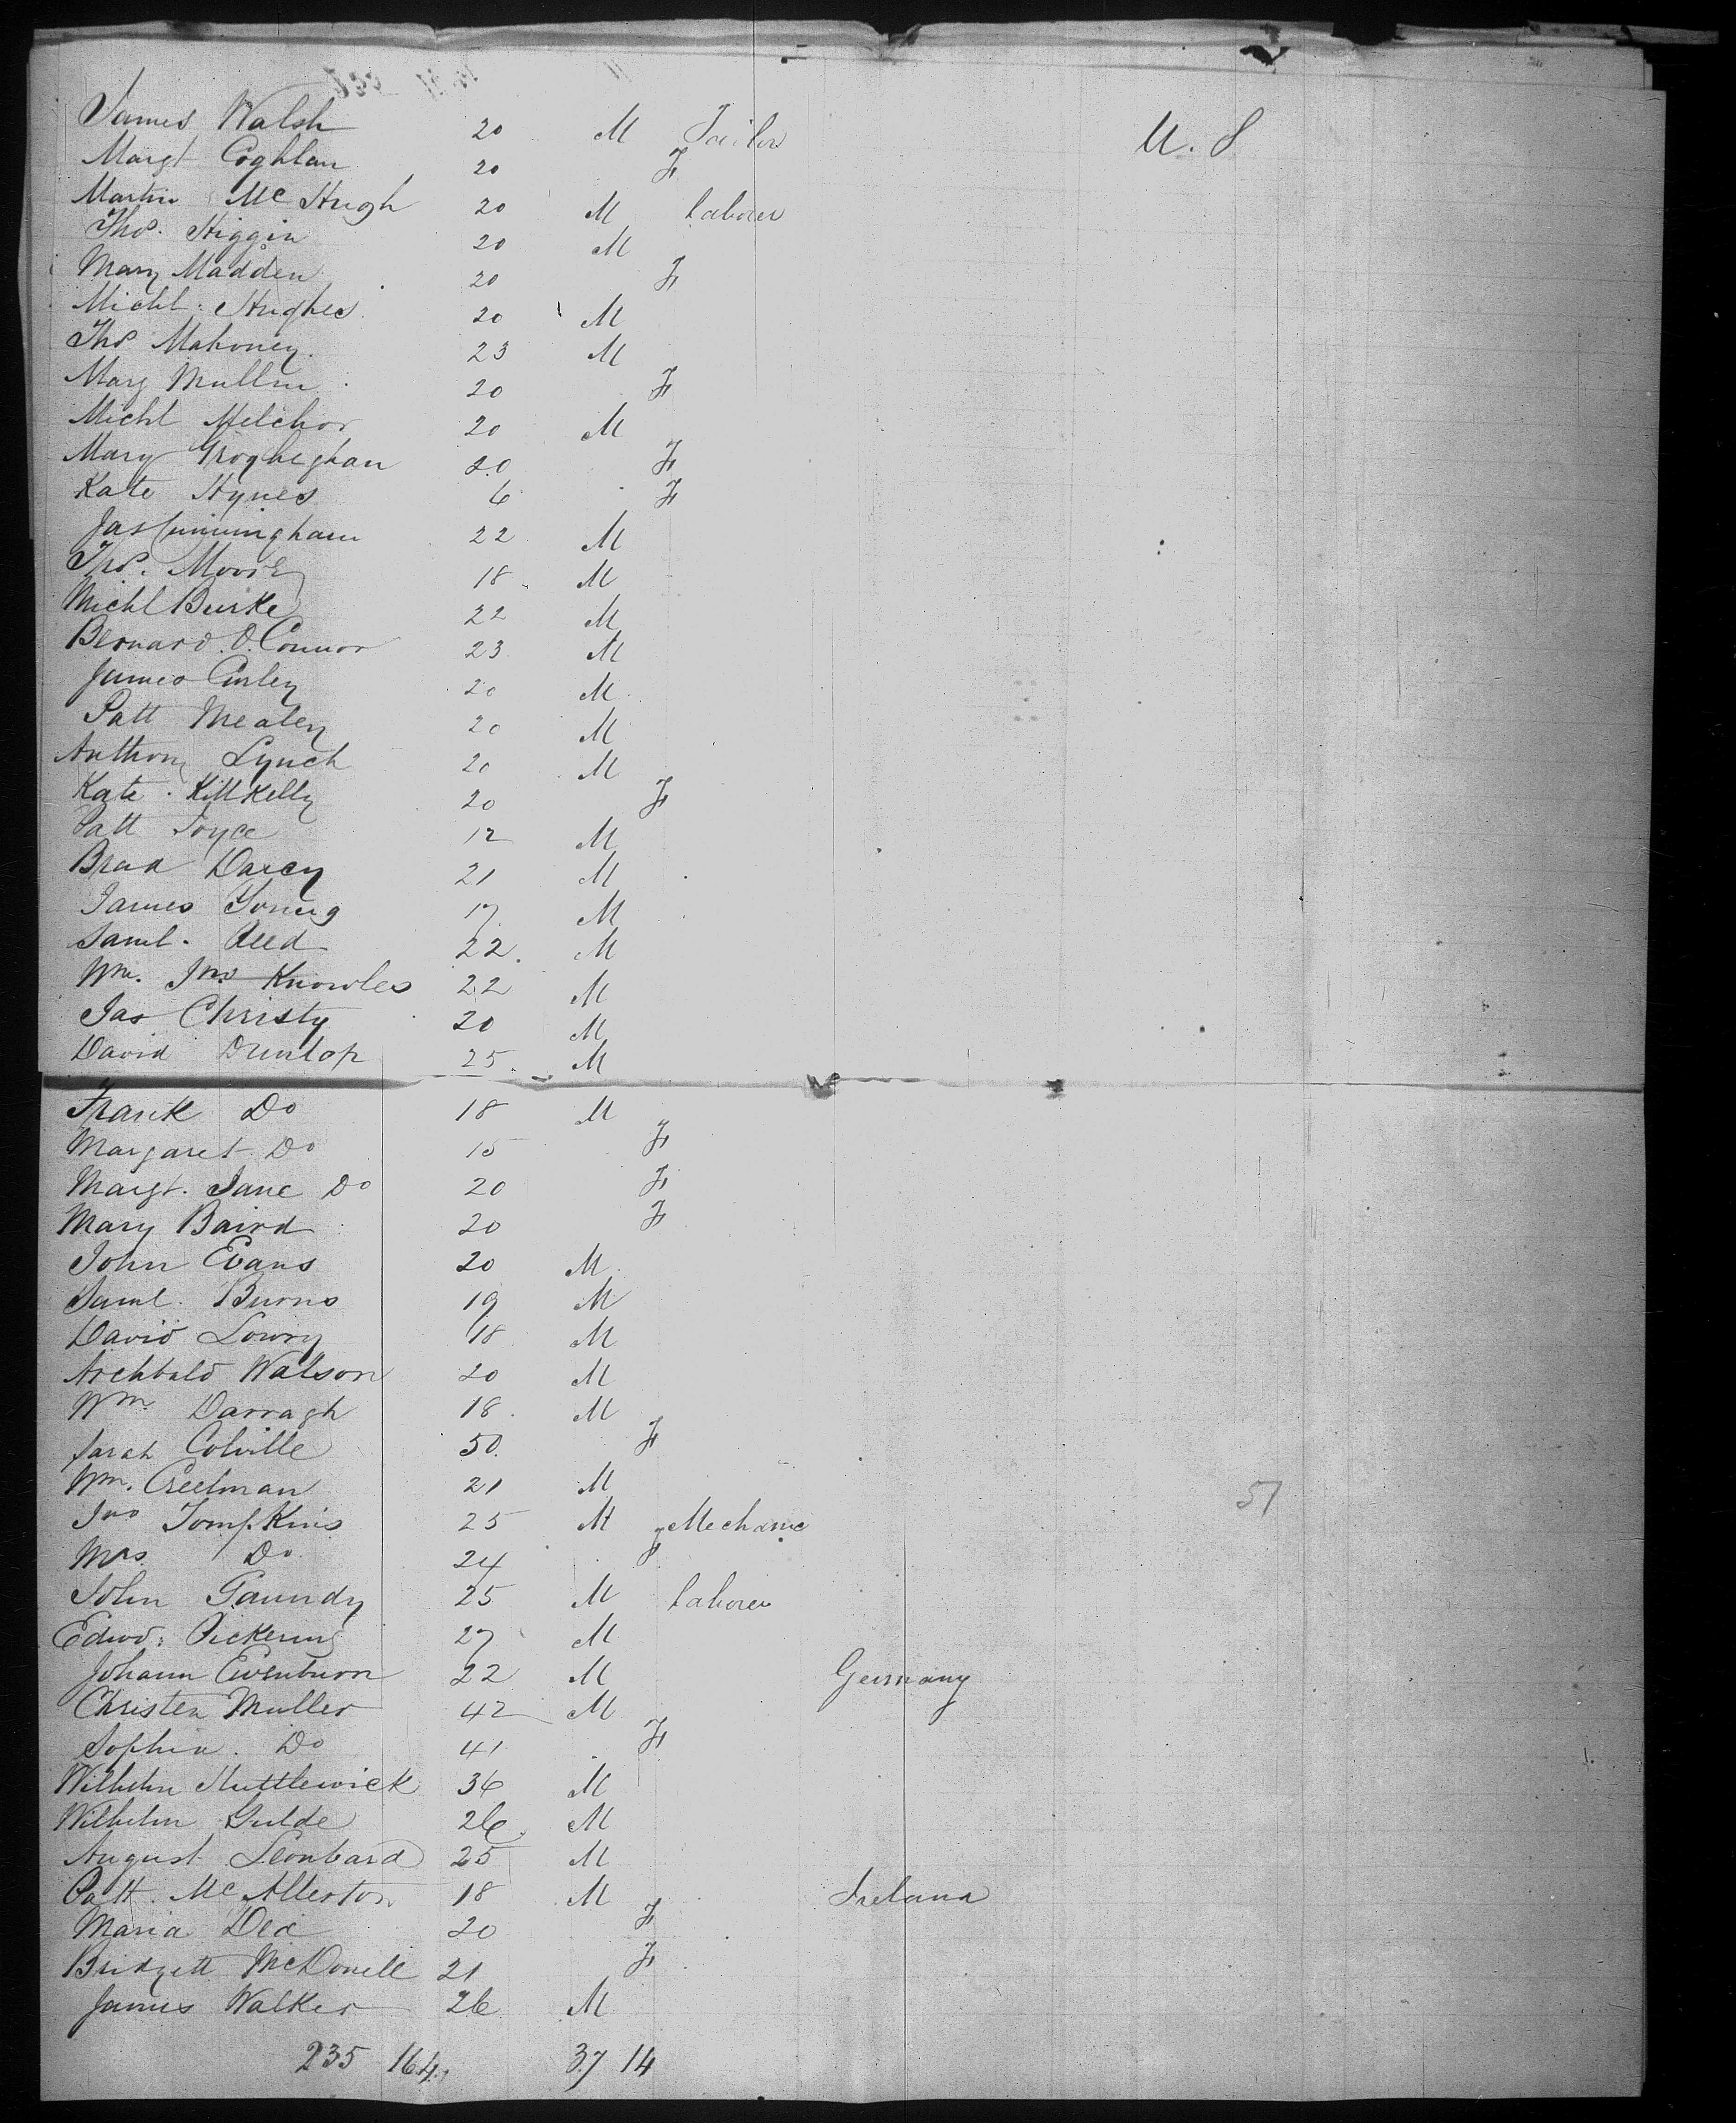 James Walsh 20 M Tailor U. S
Margt Coghlan 20 F
Martin McHugh 20 M Laborer
Thos. Higgin 20 M
Mary Madden 20 F
Michl. Hughes 20 M
Thos Mahoney 23 M
Mary Mullin 20 F
Michl Melchor 20 M
Mary Grogheghan 20 F
Kate Hynes 6 F
Jas Cunningham 22 M
Thos. Moore 18 M
Michl Burke 22 M
Bernard O. Connor 23 M
James Conley 20 M
Patt Mealey 20 M
Anthony Lynch 20 M
Kate Kittkelly 20 F
Patt Joyce 12 M
Brnd Darcy 21 M
James Young 17 M
Saml. Reed 22 M
Wm. Jno Knowles 22 M
Jas Christy 20 M
David Dunlop 25 M
Frank Do 18 M
Margaret Do 15 F
Margt. Jane Do 20 F
Mary Baird 20 F
John Evans 20 M
Saml. Burns 19 M
David Lowry 18 M
Archbald Watson 20 M
Wm. Darragh 18 M
Sarah Colville 50 F
Wm. Creelman 21 M 51
Jno Tompkins 25 M Mechanic
Mrs. Do 24 F
John Gaundy 25 M Laborer
Edwd: Pickering 27 M
Johann Eisenburn 22 M Germany
Christen Muller 42 M
Sophia. Do 41 F
Wilhelm 36 M
Wilhelm Gulde 26 M
August Leonbard 25 M
Patt. McAllerton 18 M Ireland
Maria 20 F
Bridgett McDonell 21 F
James Walker 26 M
235 164 37 14